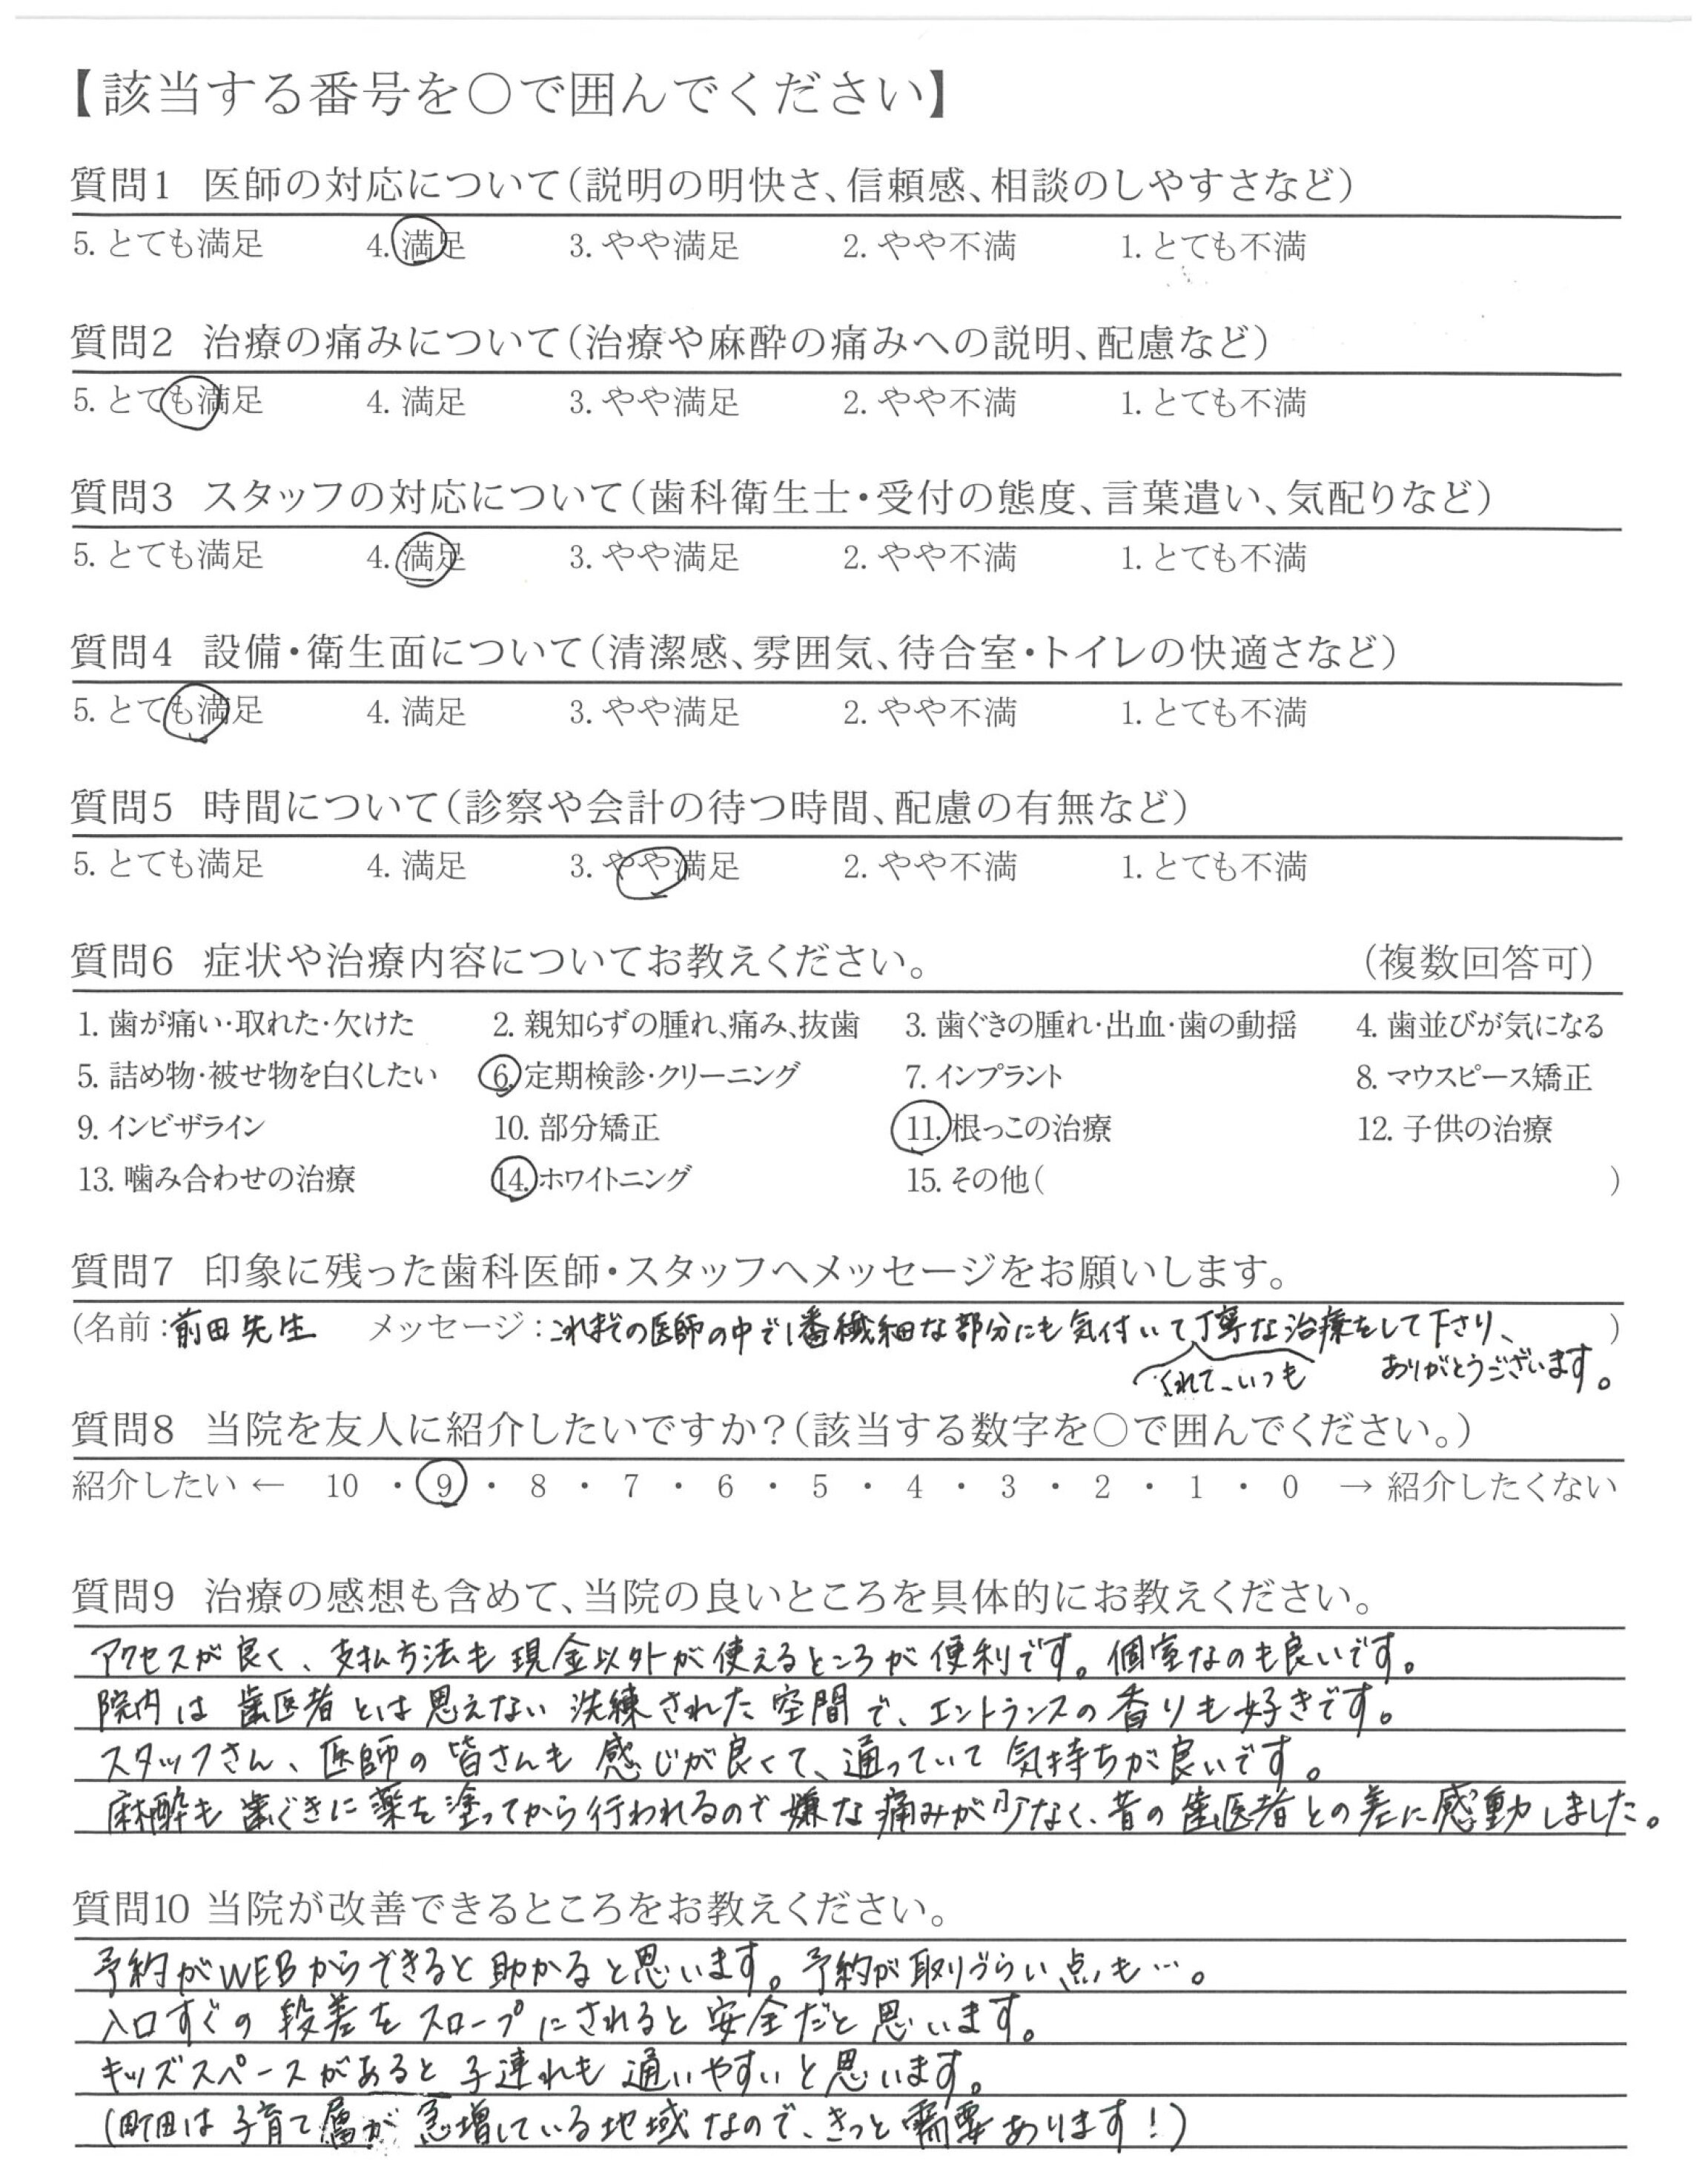 【該当する番号を○で囲んでください】
質問1 医師の対応について(説明の明快さ、信頼感、相談のしやすさなど)
5. とても満足 4. 満足 3. やや満足 2. やや不満 1. とても不満
質問2 治療の痛みについて(治療や麻酔の痛みへの説明、配慮など)
5. とても満足 4. 満足 3. やや満足 2. やや不満 1. とても不満
質問3 スタッフの対応について(歯科衛生士・受付の態度、言葉遣い、気配りなど)
5. とても満足 4. 満足 3. やや満足 2. やや不満 1. とても不満
質問4 設備・衛生面について(清潔感、雰囲気、待合室・トイレの快適さなど)
5. とても満足 4. 満足 3. やや満足 2. やや不満 1. とても不満
質問5 時間について(診察や会計の待つ時間、配慮の有無など)
5. とても満足 4. 満足 3. やや満足 2. やや不満 1. とても不満
質問6 症状や治療内容についてお教えください。 (複数回答可)
1. 歯が痛い・取れた・欠けた 2. 親知らずの腫れ、痛み、抜歯 3. 歯ぐきの腫れ・出血・歯の動揺 4. 歯並びが気になる
5. 詰め物・被せ物を白くしたい 6. 定期検診・クリーニング 7. インプラント 8. マウスピース矯正
9. インビザライン 10. 部分矯正 11. 根っこの治療 12. 子供の治療
13. 噛み合わせの治療 14. ホワイトニング 15. その他( )
質問7 印象に残った歯科医師・スタッフへメッセージをお願いします。
(名前:前田先生 メッセージ:これまでの医師の中で1番繊細な部分にも気付いて丁寧な治療をして下さり、 )
くれて、いつも ありがとうございます。
質問8 当院を友人に紹介したいですか?(該当する数字を○で囲んでください。)
紹介したい ← 10 ・ 9 ・ 8 ・ 7 ・ 6 ・ 5 ・ 4 ・ 3 ・ 2 ・ 1 ・ 0 → 紹介したくない
質問9 治療の感想も含めて、当院の良いところを具体的にお教えください。
アクセスが良く、支払方法も現金以外が使えるところが便利です。個室なのも良いです。
院内は歯医者とは思えない洗練された空間で、エントランスの香りも好きです。
スタッフさん、医師の皆さんも感じが良くて、通っていて気持ちが良いです。
麻酔も歯ぐきに薬を塗ってから行われるので嫌な痛みが少なく、昔の歯医者との差に感動しました。
質問10 当院が改善できるところをお教えください。
予約がWEBからできると助かると思います。予約が取りづらい点も…。
入口すぐの段差をスロープにされると安全だと思います。
キッズスペースがあると子連れも通いやすいと思います。
(町田は子育て層が急増している地域なので、きっと需要あります!)